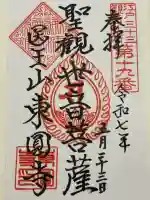 奉拝
令和七年
五月二十三日
聖観世音菩薩
医王山東圓寺
第十九番